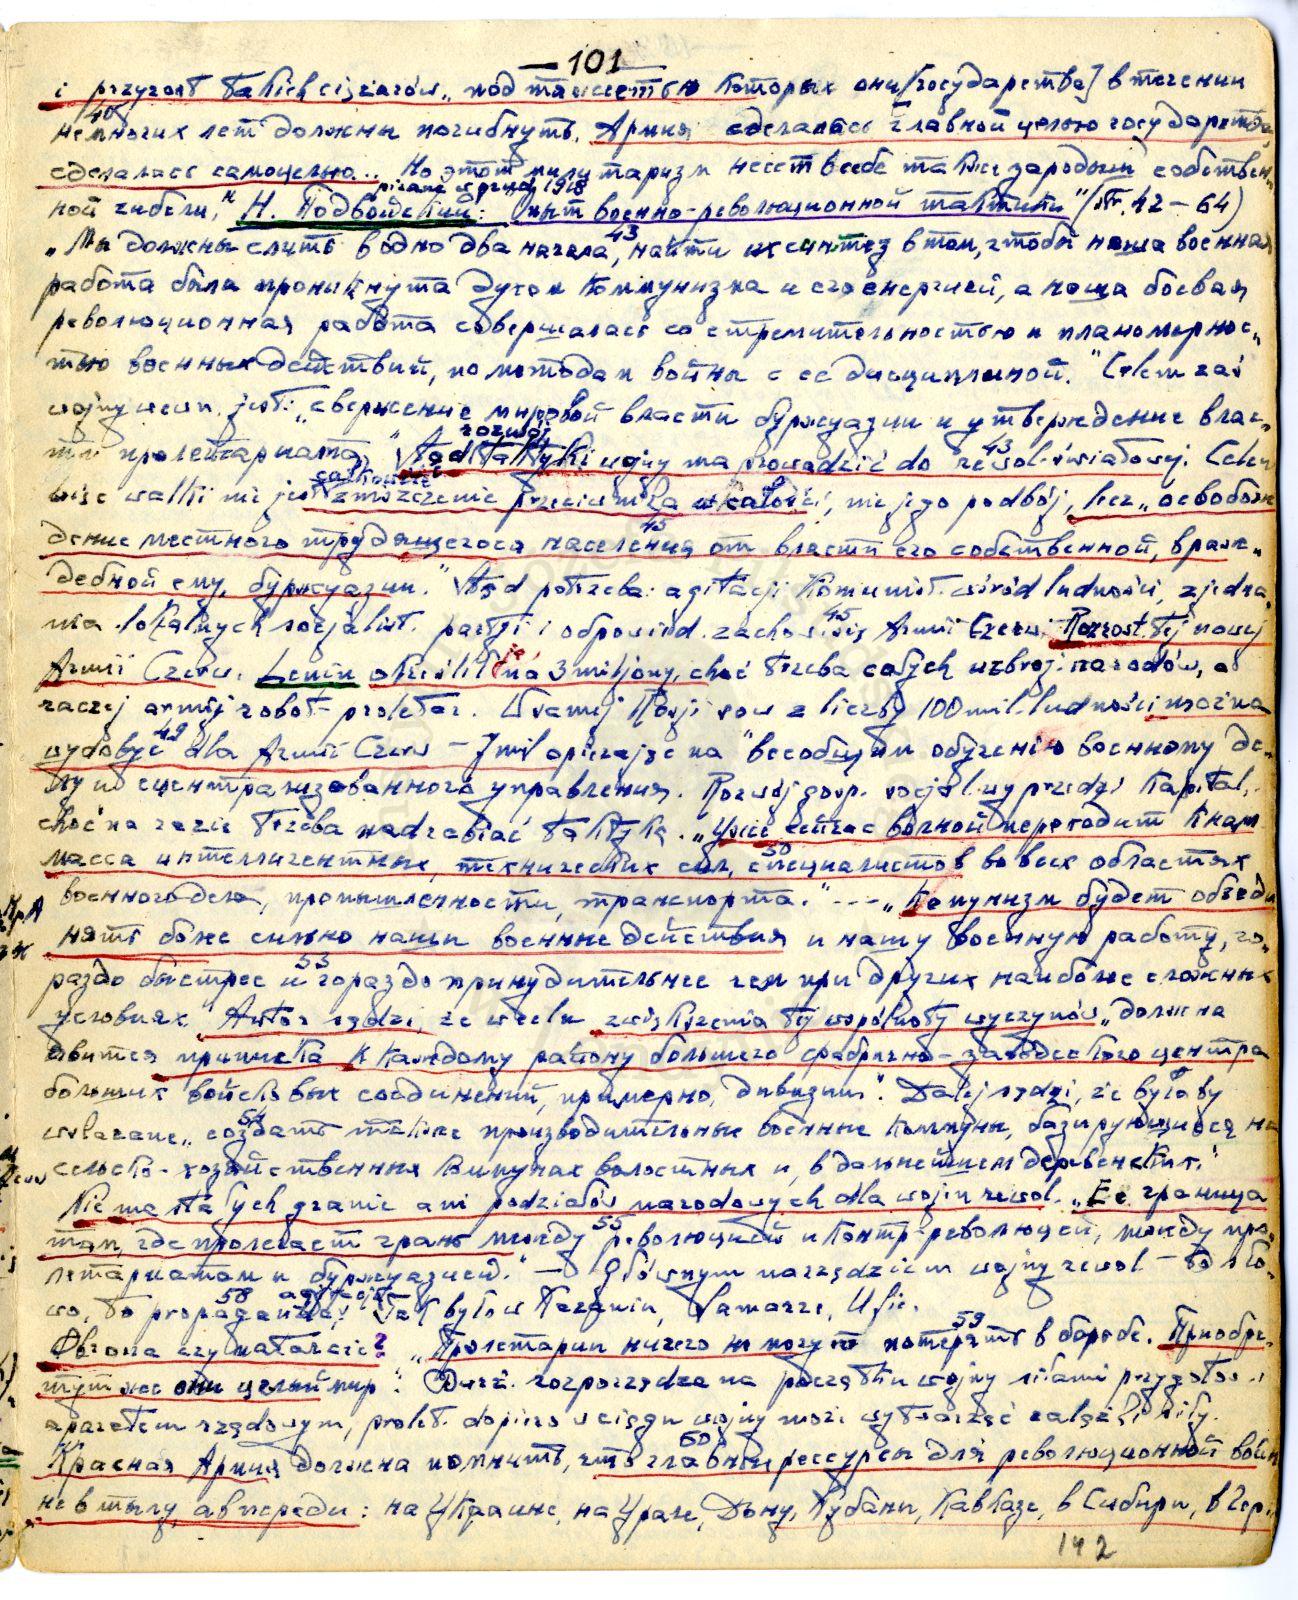 — 101 —
i przyrost takich ciężarów „под тяжестью которых они [государства] в течении
40
немногих лет должны погибнуть. Армия сделалась главной целью государства,
сделалась самоцелью... Но этот милитаризм несет в себе также зародыш собствен-
pisane w grudniu 1918
ной гибели." Н. Подвойский: Опыт военно-революционной тактики" (str. 42–64)
43
„Мы должны слить в одно два начала, найти их синтез в том, чтобы наша военная
работа была проникнута духом коммунизма и его енергией, а наша боевая
революционная работа совершалась со стремительностью и планомернос-
тью военных действий, по методам войны с ее дисциплиной." Celem zaś
wojny wewn. jest: „свержение мировой власти буржуазии и утверждение влас-
rozwój 43
ти пролетариата" Stąd taktyki wojny ma prowadzić do rewol. światowej. Celem
całkowite
więc walki nie jest zniszczenie przeciwnika w całości, nie jego podbój, lecz „освобож-
45
дение местного трудящегося населения от власти его собственной, враж-
дебной ему, буржуазии." Stąd potrzeba: agitacji komunist. wśród ludności, zjedna-
45
nia lokalnych socjalist. partji i odpowied. zachow. się Armii Czerw. Rozrost tej nowej
ją
Armii Czerw. Lenin określił na 3 miljony, choć trzeba całych uzbroj. narodów, a
raczej armij robot-proletar. W samej Rosji sow z liczby 100 mil. ludności można
49
wydobyć dla Armii Czerw – 7 mil opierając na "всеобщем обучению военному де-
лу и централизованного управления. Rozwój gosp. socjal. wyprzedzi kapital.,
choć na razie trzeba nadrabiać taktyką. „Уже сейчас волной переходит к нам
50
масса интеллигентных, технических сил, специалистов во всех областях
военного дела, промышленности, транспорта." --- „Комунизм будет объеди-
нять боле сильно наши военные действия и нашу военную работу, го-
53
раздо быстрее и гораздо принудительнее чем при других наиболее сложных
условиях." Autor sądzi, że w celu zwiększenia tej wspólnoty wyczynów „должна
явится приписка к каждому району большего фабрично-заводского центра
больших войсковых соединений, примерно, дивизии". Dalej sądzi, że byłoby
54
wskazane „создать также производительные военные коммуны, базирующиеся на
сельско-хозяйственных комунах волостных и, в дальнейшем деревенских."
Nie ma stałych granic ani podziałów narodowych dla wojny rewol. „Ее граница
55
там, где пролегает грань между революцией и контр-революцией, между про-
летариатом и буржуазией." — Głównym narzędziem wojny rewol – to sło-
58 agitacja
wo, to propaganda. Tak było w Kazaniu, Samarze, Ufie.
59
Obrona czy natarcie? „Пролетарии ничего не могут потерять в борьбе. Приобре-
тут же они целый мир". Burż. rozporządza na początku wojny siłami przygotow. i
aparatem rządowym, prolet. dopiero w ciągu wojny może wytwarzać siły.
60
Красная Армия должна помнить, что главный рессурсы для революционной войны
не в тылу, а впереди: на Украине, на Урале, Дону, Кубани, Кавказе, в Сибири, в Гер-
142